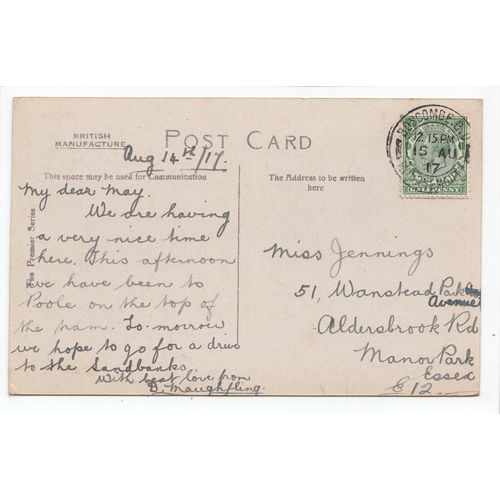 BRITISH
MANUFACTURE
POST CARD
Aug 14th/17.
This space may be used for Communication
The Address to be written
here
The Premier Series
My dear May.
We are having
a very nice time
here. This afternoon
we have been to
Poole on the top of
the tram. To-morrow
we hope to go for a drive
to the Sandbanks
With best love from
D. Maughfling.
BOSCOMBE
12.15PM
15 AU
17
BOURNEMOUTH
HALFPENNY
Miss Jennings
51, Wanstead Park
Avenue
Aldersbrook Rd
Manor Park
Essex
E 12.